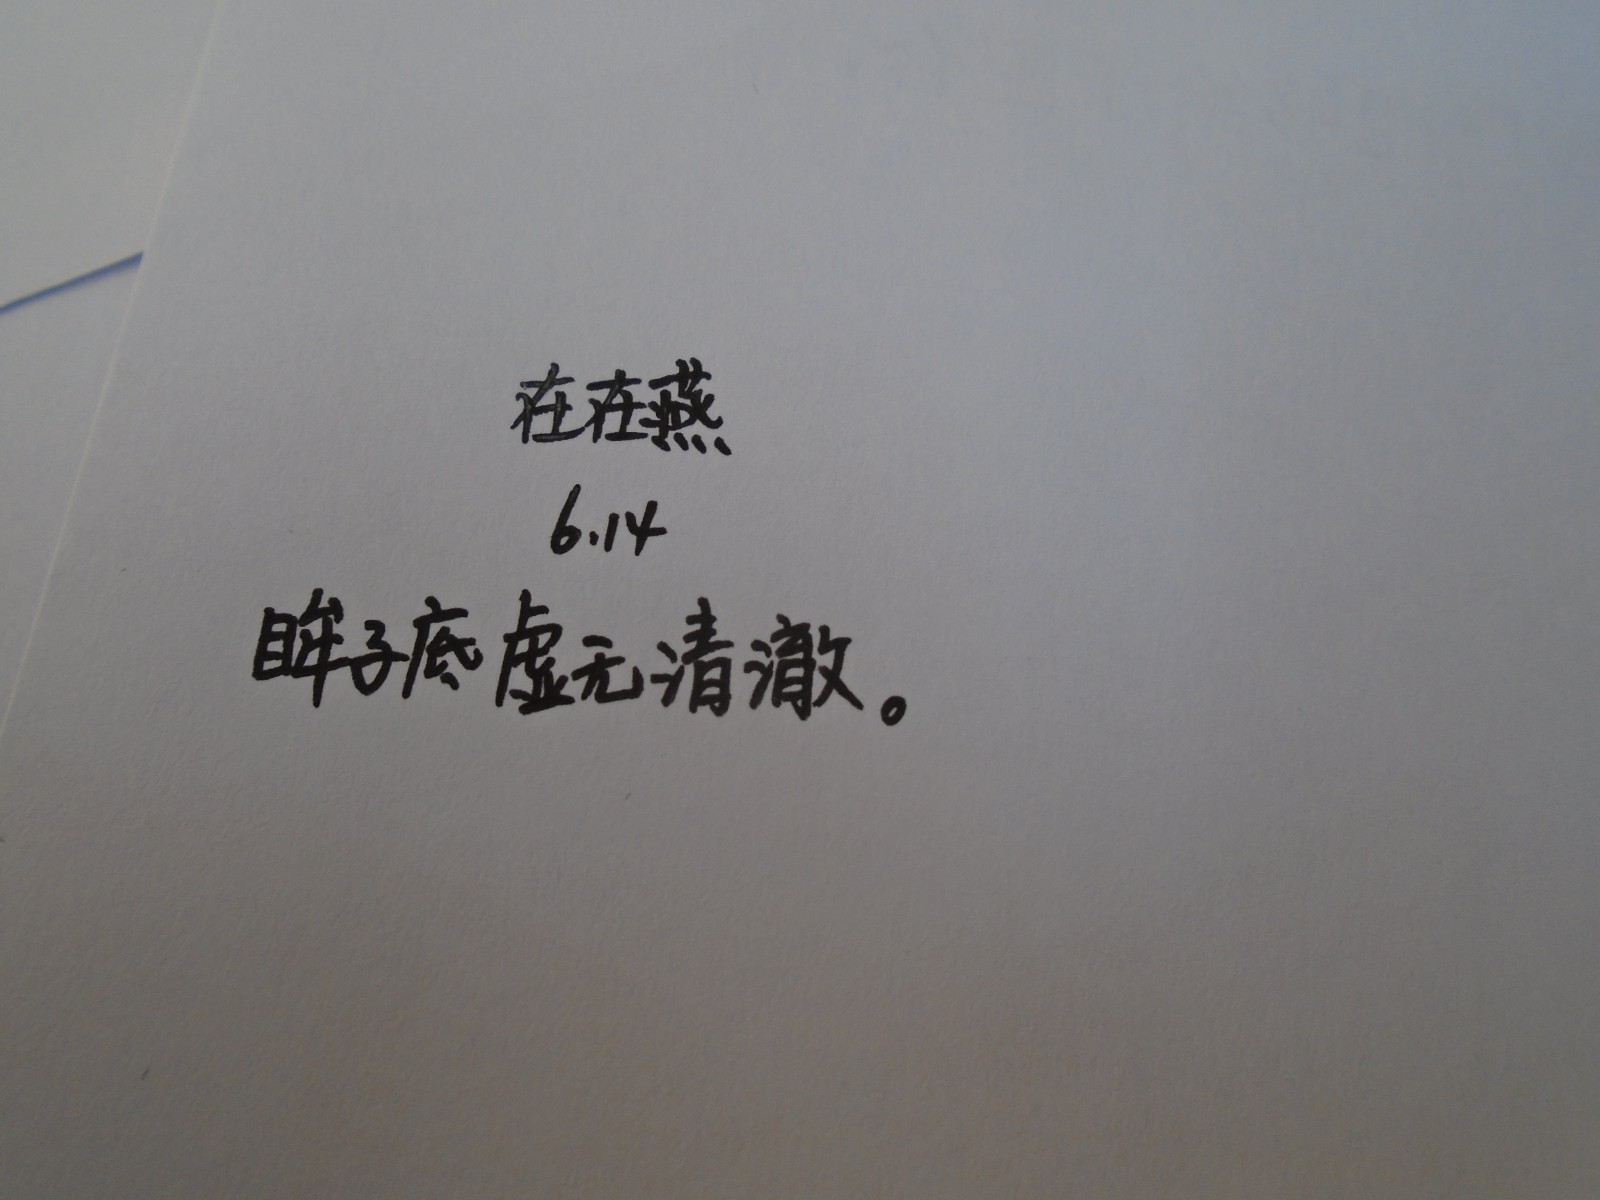 在在燕
6.14
眸子底虚无清澈。